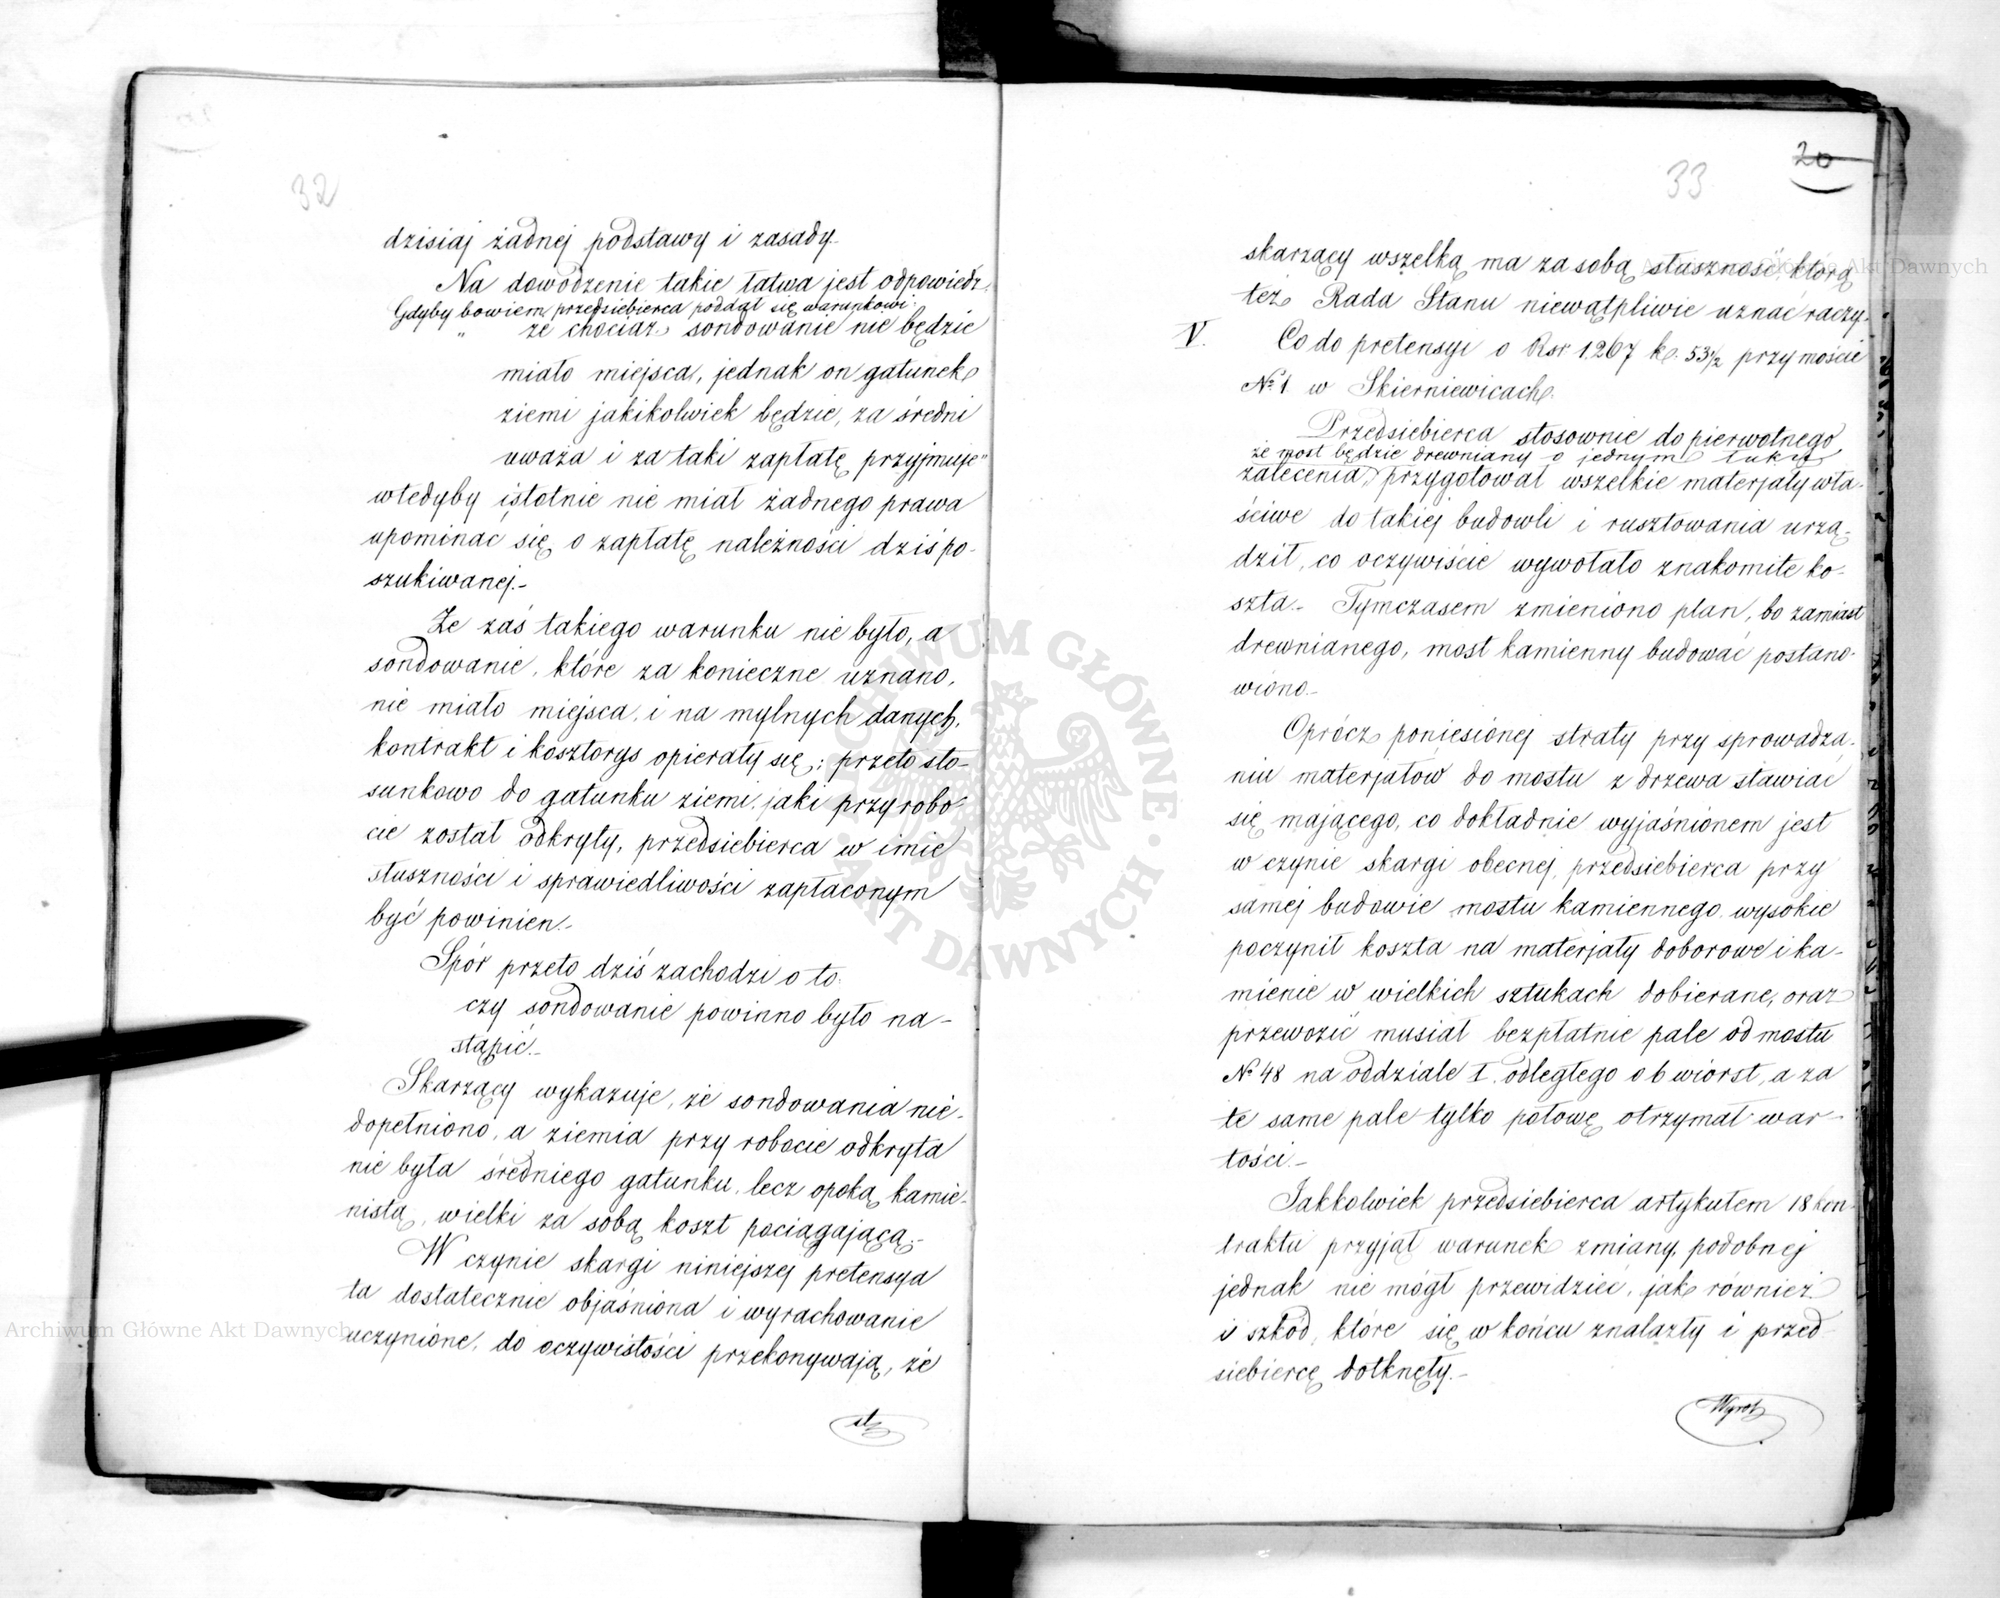 32
dzisiaj żadnej podstawy i zasady.
Na dowodzenie takie łatwa jest odpowiedź.
Gdyby bowiem przedsiebierca poddał się warunkowi:
„ że chociaż sondowanie nie będzie
miało miejsca, jednak on gatunek
ziemi jakikolwiek będzie, za średni
uważa i za taki zapłatę przyjmuje"
wtedyby istotnie nie miał żadnego prawa
upominać się o zapłatę należności dziś po-
szukiwanej.-
Że zaś takiego warunku nie było, a
sondowanie, które za konieczne uznano,
nie miało miejsca, i na mylnych danych,
kontrakt i kosztorys opierały się; przeto sto-
sunkowo do gatunku ziemi, jaki przy robo-
cie został odkryty, przedsiebierca w imie
słuszności i sprawiedliwości zapłaconym
być powinien.-
Spór przeto dziś zachodzi o to:
czy sondowanie powinno było na-
stąpić.-
Skarżący wykazuje, że sondowania nie-
dopełniono, a ziemia przy robocie odkryta
nie była średniego gatunku, lecz opoką kamie-
nistą, wielki za sobą koszt pociągającą.-
W czynie skargi niniejszej pretensya
ta dostatecznie objaśniona i wyrachowanie
uczynione, do oczywistości przekonywają, że
20
33
skarżący wszelką ma za sobą słuszność którą
też Rada Stanu niewątpliwie uznać raczy.
V. Co do pretensyi o Rsr 1,267 k. 53½ przy moście
№ 1 w Skierniewicach.
Przedsiebierca stosownie do pierwotnego
że most będzie drewniany o jednym łuku
zalecenia, przygotował wszelkie materjały wła-
ściwe do takiej budowli i rusztowania urzą-
dził, co oczywiście wywołało znakomite ko-
szta.- Tymczasem zmieniono plan, bo zamiast
drewnianego, most kamienny budować postano-
wiono.-
Oprócz poniesiónej straty przy sprowadza-
niu materjałów do mostu z drzewa stawiać
się mającego, co dokładnie wyjaśnionem jest
w czynie skargi obecnej, przedsiebierca przy
samej budowie mostu kamiennego wysokie
poczynił koszta na materjały doborowe i ka-
mienie w wielkich sztukach dobierane, oraz
przewozić musiał bezpłatnie pale od mostu
№ 48 na oddziale I. odległego o 6 wiorst, a za
te same pale tylko połowę otrzymał war-
tości.-
Jakkolwiek przedsiebierca artykułem 18 kon-
traktu przyjął warunek zmiany podobnej
jednak nie mógł przewidzieć, jak również
i szkód, które się w końcu znalazły i przed-
siebiercę dotknęły.-
Archiwum Główne Akt Dawnych
Archiwum Główne Akt Dawnych
ARCHIWUM GŁÓWNE · AKT DAWNYCH ·